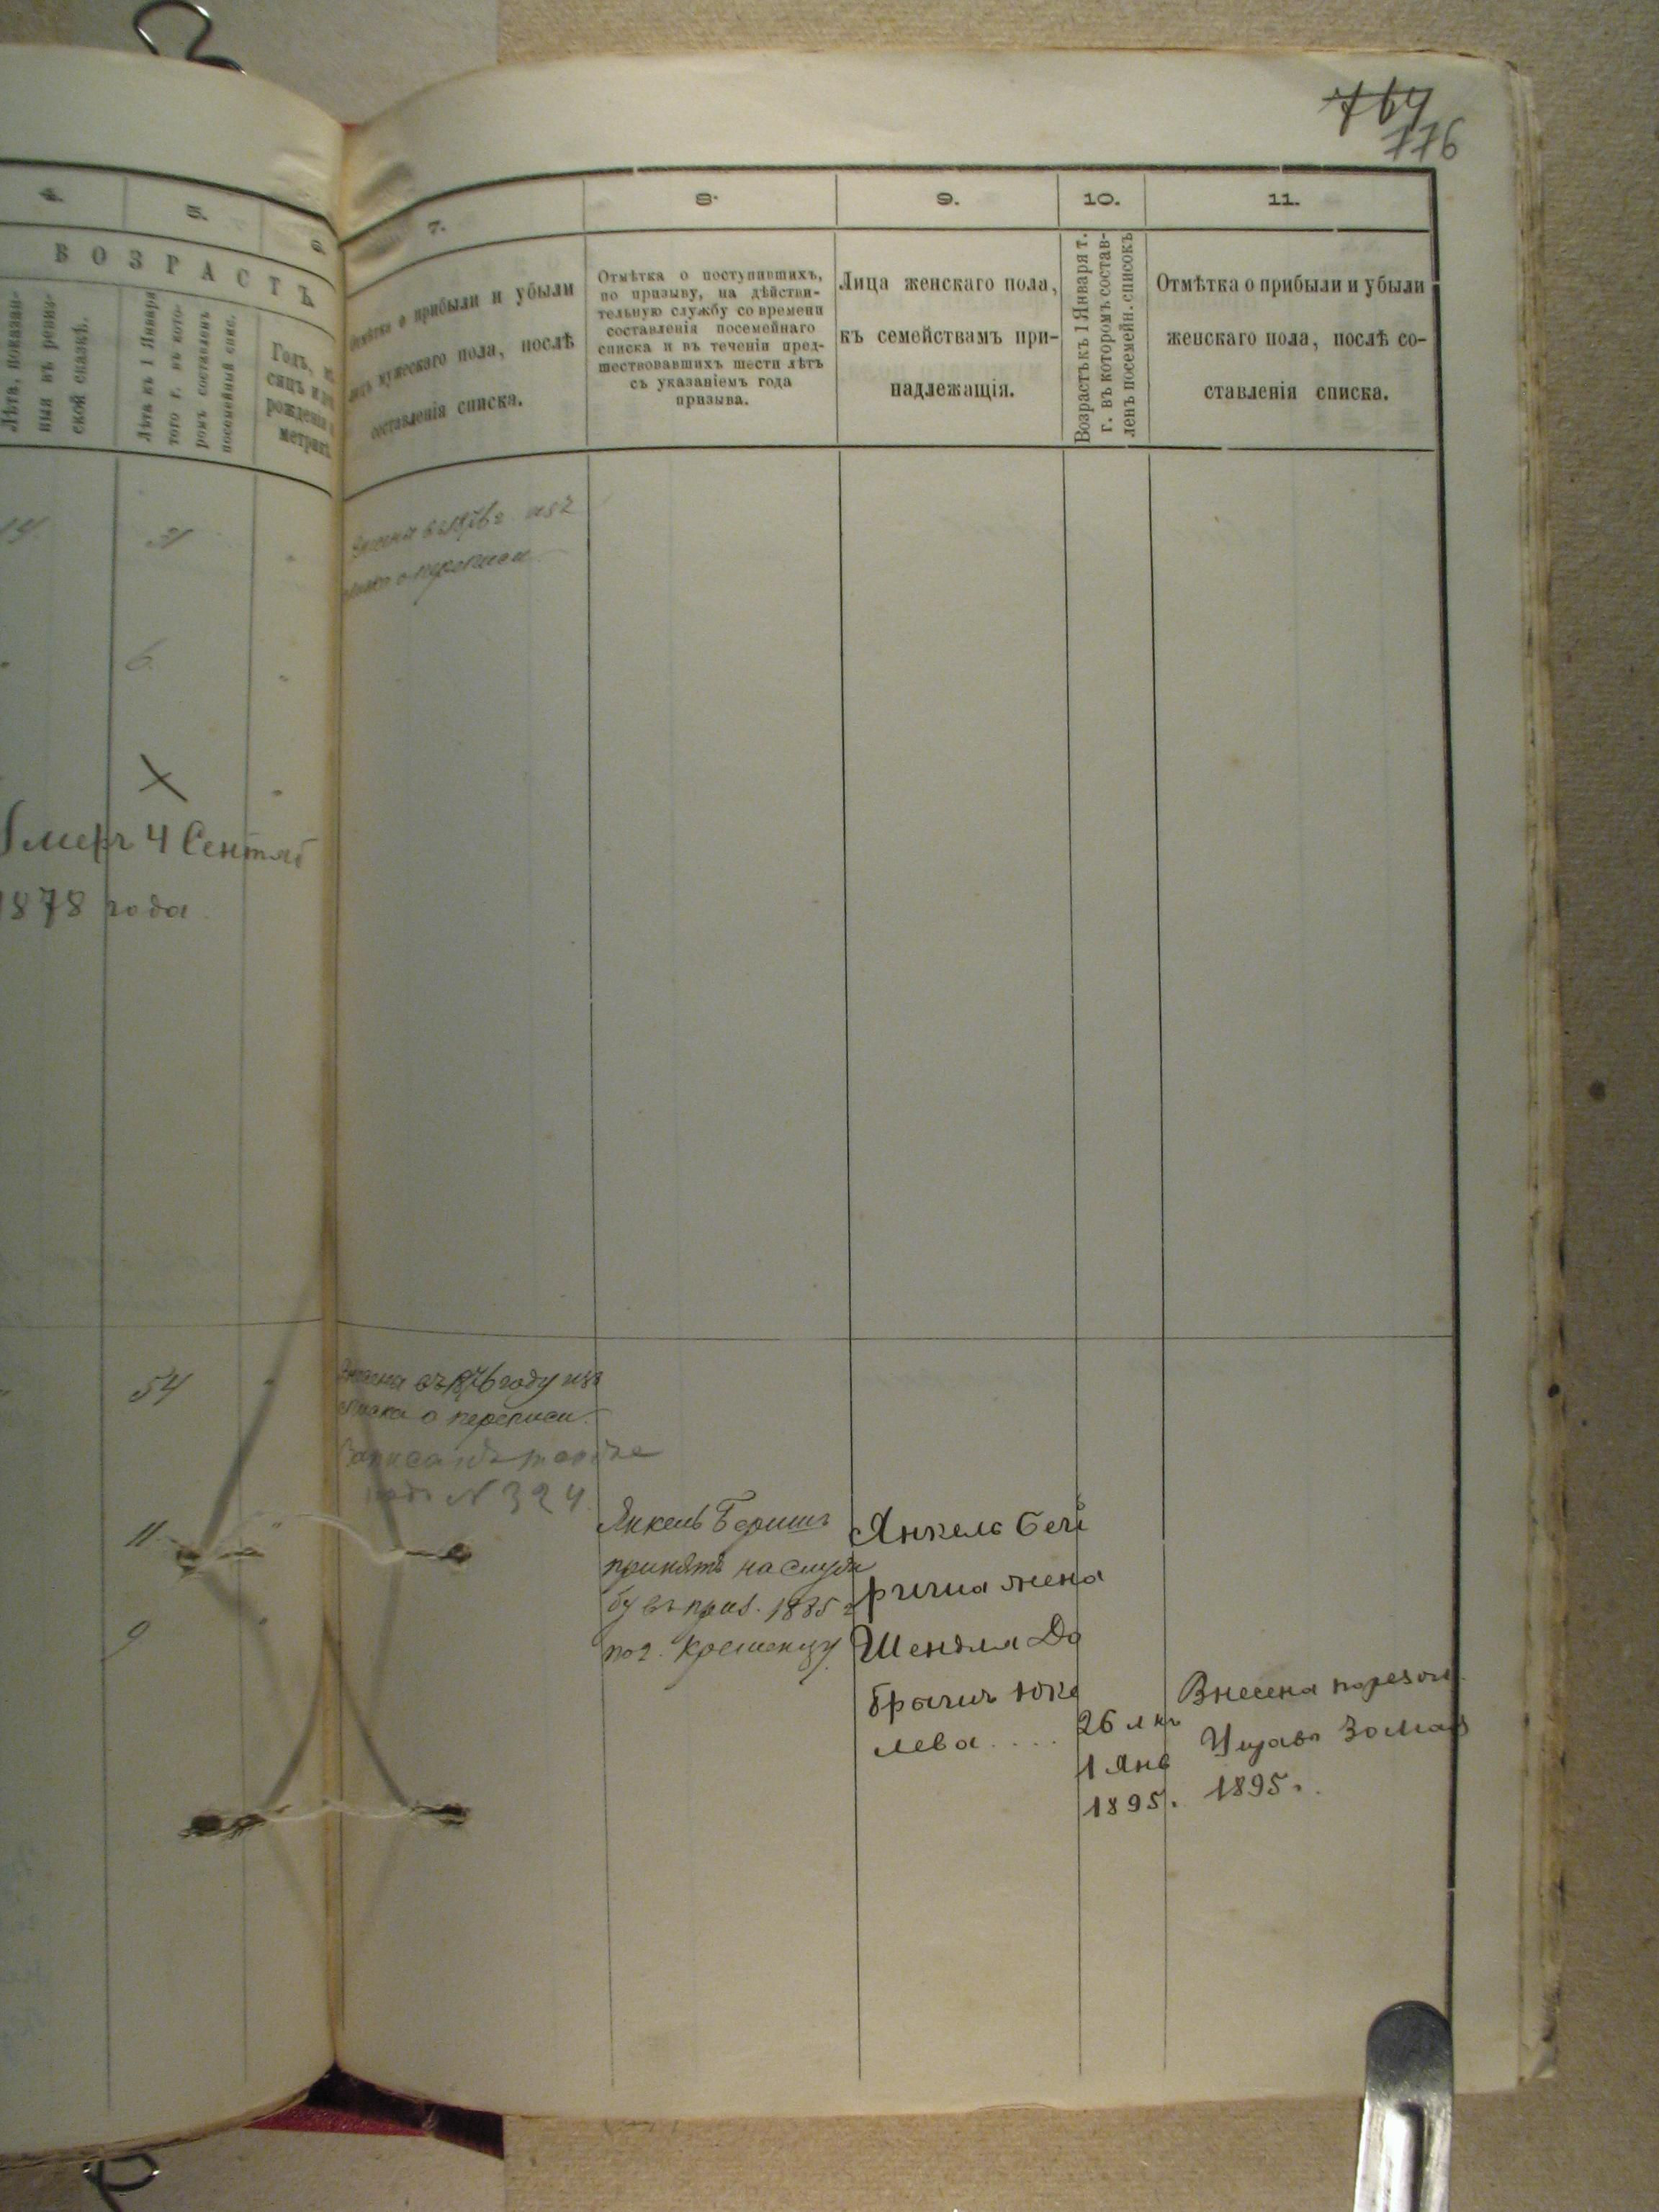 764
776
4.
5.
6.
ВОЗРАСТЪ
Лѣта, показан-
ныя въ ревиз-
ской сказкѣ.
Лѣта къ 1 Января
того г. въ кото-
ромъ составленъ
посемейный спис.
Годъ, мѣ
сяцъ и
рожденія
метрик
7.
Отмѣтка о прибыли и убыли
лицъ мужескаго пола, послѣ
составленія списка.
8.
Отмѣтка о поступившихъ,
по призыву, на дѣйстви-
тельную службу со времени
составленія посемейнаго
списка и въ теченіи пред-
шествовавшихъ шести лѣтъ
съ указаніемъ года
призыва.
9.
Лица женскаго пола,
къ семействамъ при-
надлежащія.
10.
Возрастъ къ 1 Января т.
г. въ которомъ состав-
ленъ посемейн. списокъ
11.
Отмѣтка о прибыли и убыли
женскаго пола, послѣ со-
ставленія списка.
31
въ 1876 г. изъ
о переписи
6.
Умеръ 4 Сентяб
1878 года
54
внесена въ 1876 году изъ
списка о переписи.
Записанъ
подъ N 324.
11
9
Янкель Беришъ
принятъ на служ
бу въ приз. 1885 г
по г. Кременцу.
Янкель Бе
жена
Шендля До
26 л къ
1 Янв
1895.
Внесена по резол.
Управ 30 Мая
1895 г.